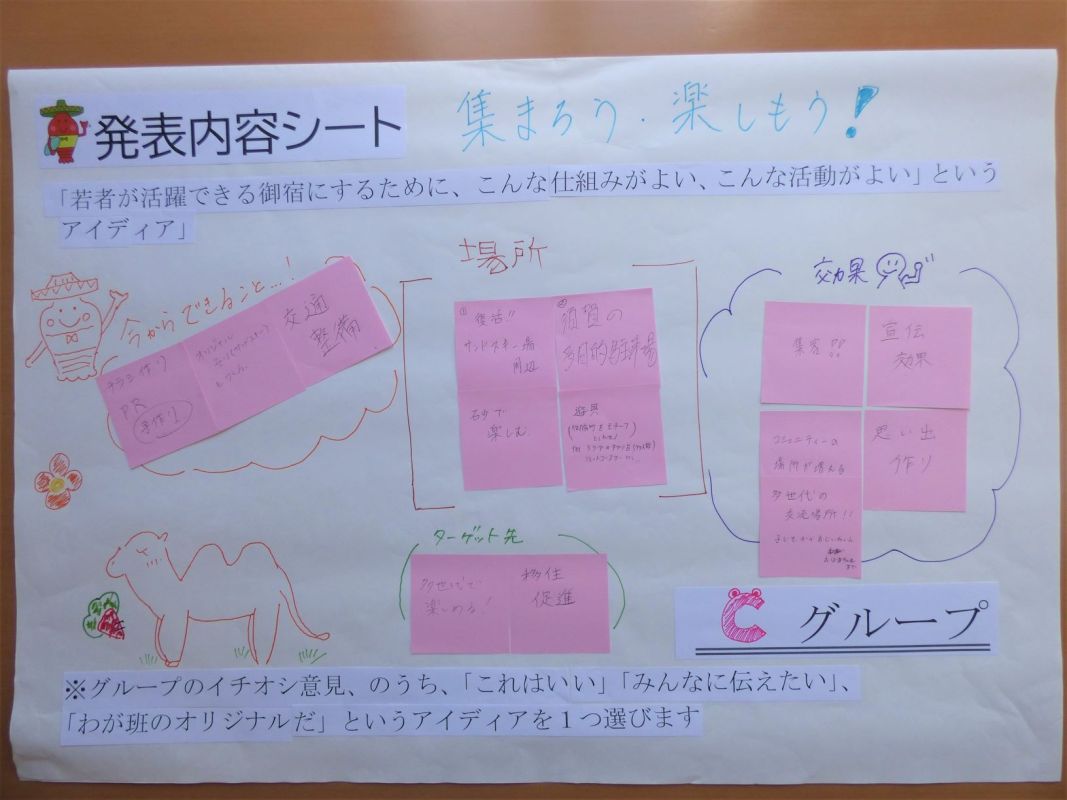 発表内容シート
集まろう・楽しもう!
「若者が活躍できる御宿にするために、こんな仕組みがよい、こんな活動がよい」という
アイディア」
今からできること…!
チラシ作り
PR
手作り
オリジナル
交通
整備
場所
① 復活!!
サンドスキー場
周辺
② 須賀の
多目的駐車場
砂で
楽しむ
遊具
効果
集客!!
宣伝
効果
コミュニティーの
場所が増える
思い出
作り
多世代の
交流場所!!
ターゲット先
多世代で
楽しめる!
移住
促進
C グループ
※グループのイチオシ意見、のうち、「これはいい」「みんなに伝えたい」、
「わが班のオリジナルだ」というアイディアを1つ選びます